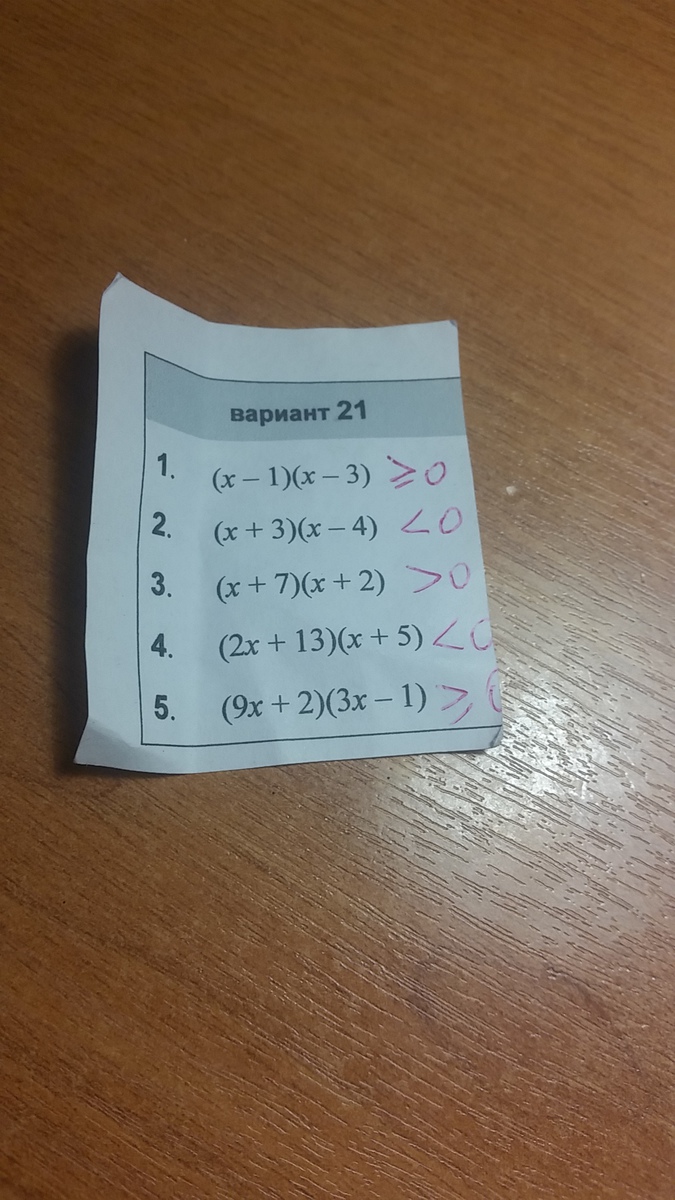 вариант 21
1. (x – 1)(x – 3) ⩾ 0
2. (x + 3)(x – 4) < 0
3. (x + 7)(x + 2) > 0
4. (2x + 13)(x + 5) < 0
5. (9x + 2)(3x – 1) ⩾ 0